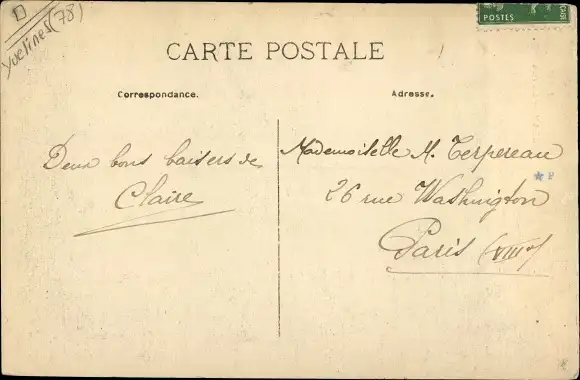 D
Yvelines (78)
POSTES
CARTE POSTALE
Correspondance.
Adresse.
Deux bons baisers de
Claire
Mademoiselle M. Terpereau
26 rue Washington
Paris (VIIIe)